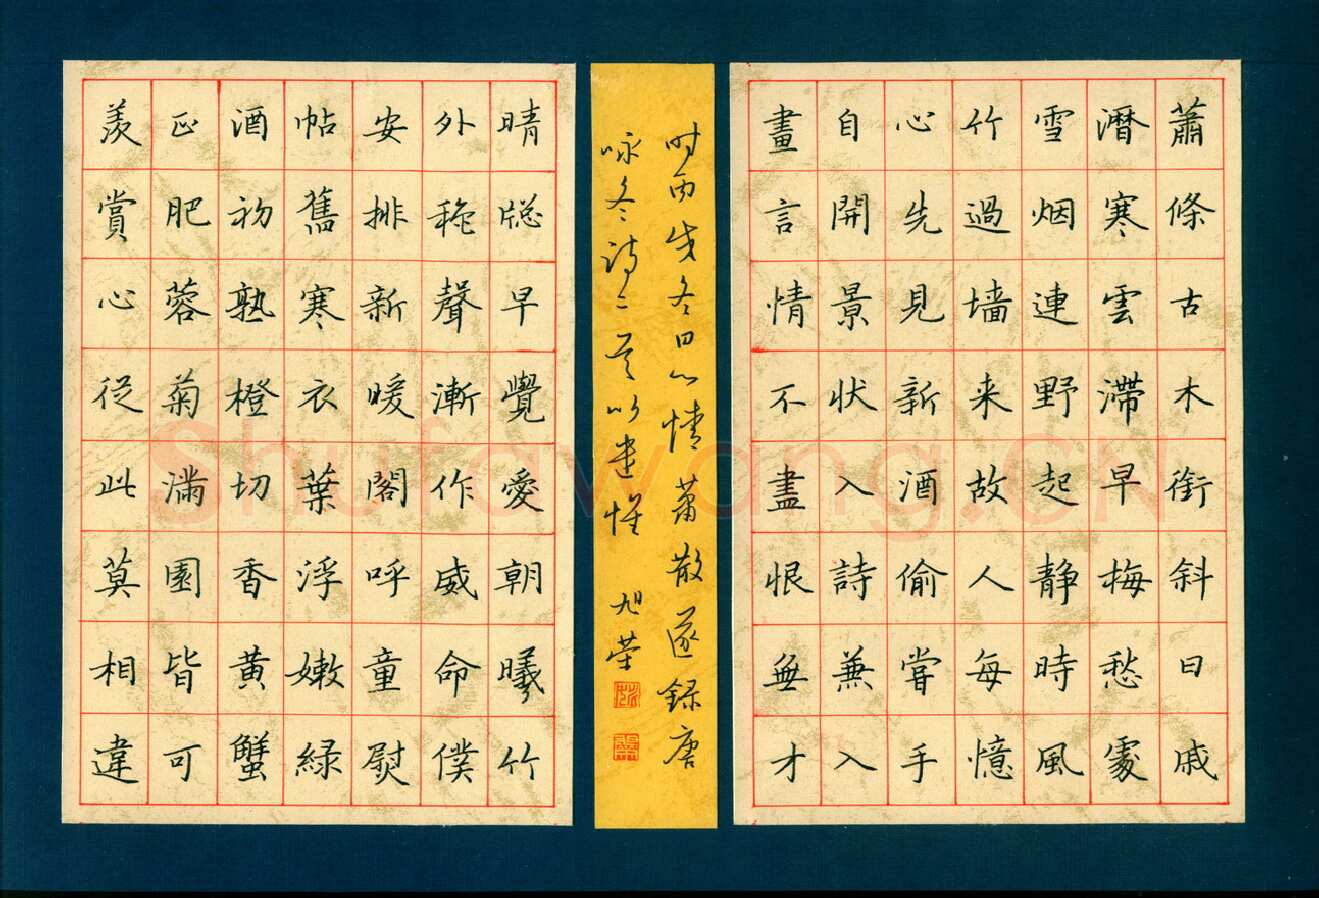 蕭條古木銜斜日戚
瀝寒雲滯早梅愁處
雪烟連野起静時風
竹過墙来故人每憶
心先見新酒偷嘗手
自開景狀入詩兼入
畫言情不盡恨無才
时丙戌冬日心情蕭散遂録唐
咏冬诗二首以遣懷 旭荣
晴牕早覺愛朝曦竹
外穐聲漸作威命僕
安排新暖閣呼童熨
帖舊寒衣葉浮嫩緑
酒初熟橙切香黄蟹
正肥蓉菊滿園皆可
羡賞心從此莫相違
Shufawang.CN